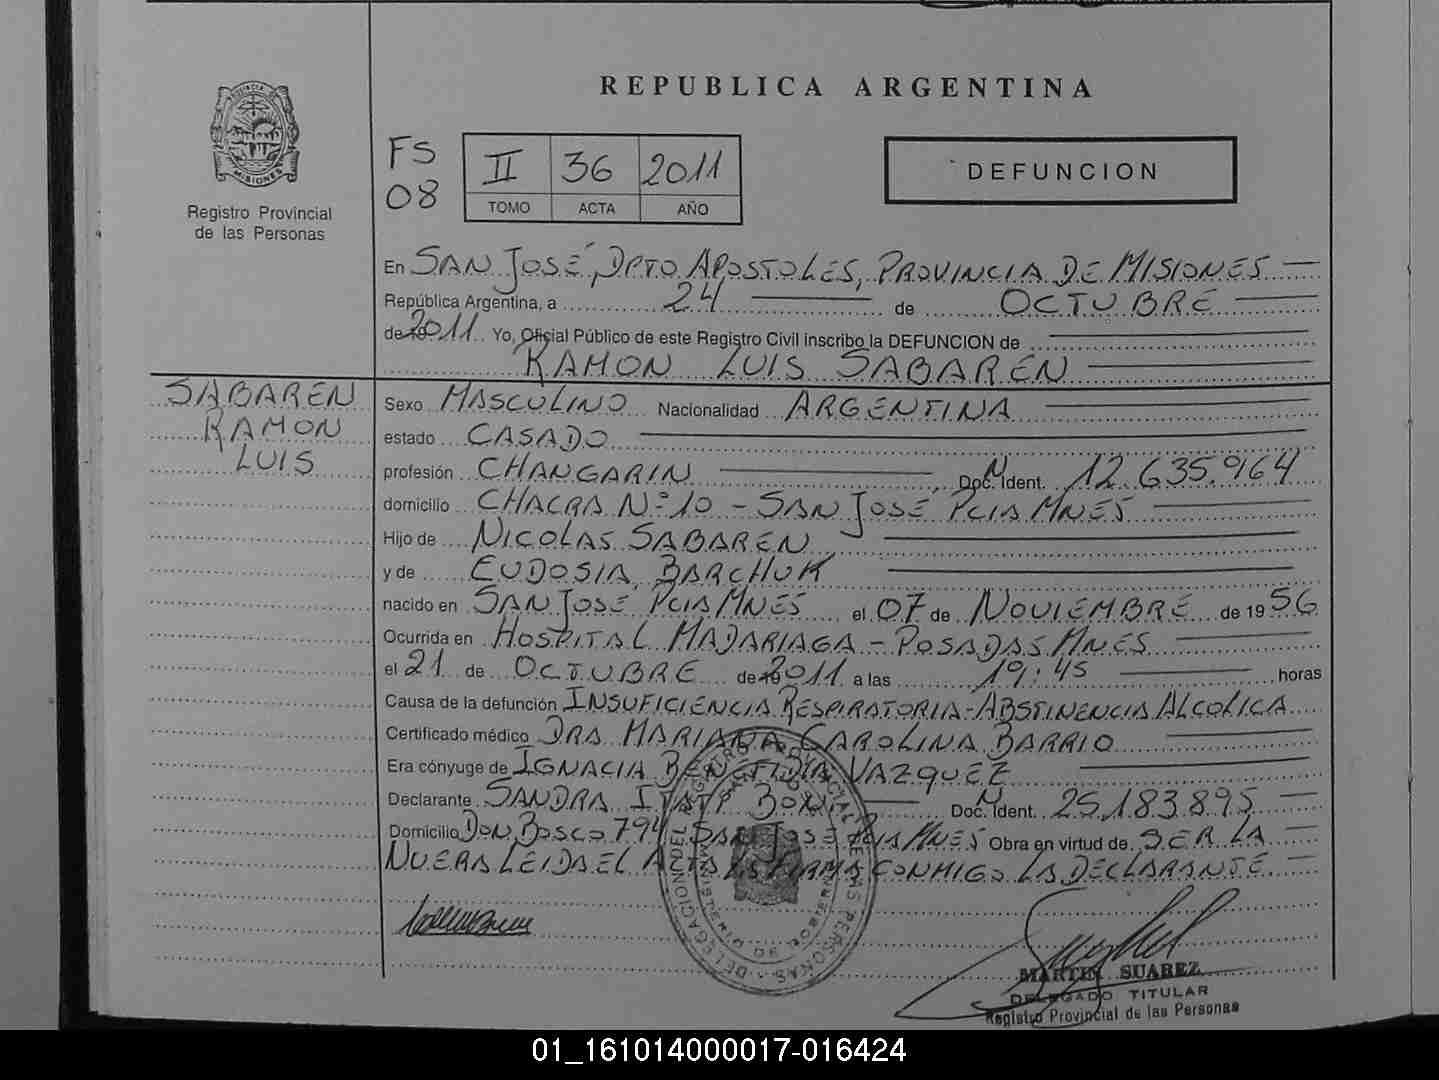 REPUBLICA ARGENTINA
PROVINCIA DE
MISIONES
Registro Provincial
de las Personas
FS
08
II 36 2011
TOMO ACTA AÑO
DEFUNCION
En SAN JOSÉ, DPTO. APOSTOLES, PROVINCIA DE MISIONES
República Argentina, a 24 de OCTUBRE
de 2011 Yo, Oficial Público de este Registro Civil inscribo la DEFUNCION de
RAMON LUIS SABAREN
SABAREN
RAMON
LUIS
Sexo MASCULINO Nacionalidad ARGENTINA
estado CASADO
profesión CHANGARIN Doc. N Ident. 12.635.964
domicilio CHACRA Nº 10 - SAN JOSÉ PCIA MNES
Hijo de NICOLAS SABAREN
y de EUDOSIA BARCHUK
nacido en SAN JOSÉ PCIA MNES el 07 de NOVIEMBRE de 1956
Ocurrida en HOSPITAL MADARIAGA - POSADAS MNES
el 21 de OCTUBRE de 2011 a las 19:45 horas
Causa de la defunción INSUFICIENCIA RESPIRATORIA - ABSTINENCIA ALCOLICA
Certificado médico DRA MARIANA CAROLINA BARRIO
Era cónyuge de IGNACIA VAZQUEZ
Declarante SANDRA Doc. N Ident. 25.183.895
Domicilio DON BOSCO 794 SAN JOSÉ PCIA MNES Obra en virtud de SER LA
NUERA LEIDA EL ACTA LA FIRMA CONMIGO LA DECLARANTE
MARTIN SUAREZ
DELEGADO TITULAR
Registro Provincial de las Personas
01_161014000017-016424